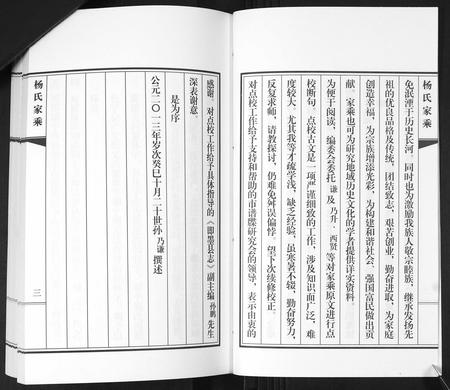 杨氏家乘
免泯湮于历史长河，同时也为激励我族人敬宗睦族，继承发扬先
祖的优良品格及传统，团结致志，艰苦创业，勤奋进取，为家庭
创造幸福，为宗族增添光彩，为构建和谐社会、强国富民做出贡
献。家乘也可为研究地域历史文化的学者提供详实资料。
为便于阅读，编委会委托谦及乃升、西贤等对家乘原文进行点
校断句。点校古文是一项严谨细致的工作，涉及知识面广泛，难
度较大，尤其我等才疏学浅，缺乏经验，虽寒暑不辍，勤奋努力，
反复求师，请教探讨，仍难免舛误偏悖，望下次续修校正。
对点校工作给予支持和帮助的市谱牒研究会的领导，表示由衷的
感谢。对点校工作给予具体指导的《即墨县志》副主编孙鹏先生
深表谢意
是为序
公元二〇一三年岁次癸巳十月二十世孙乃谦撰述
杨氏家乘
三